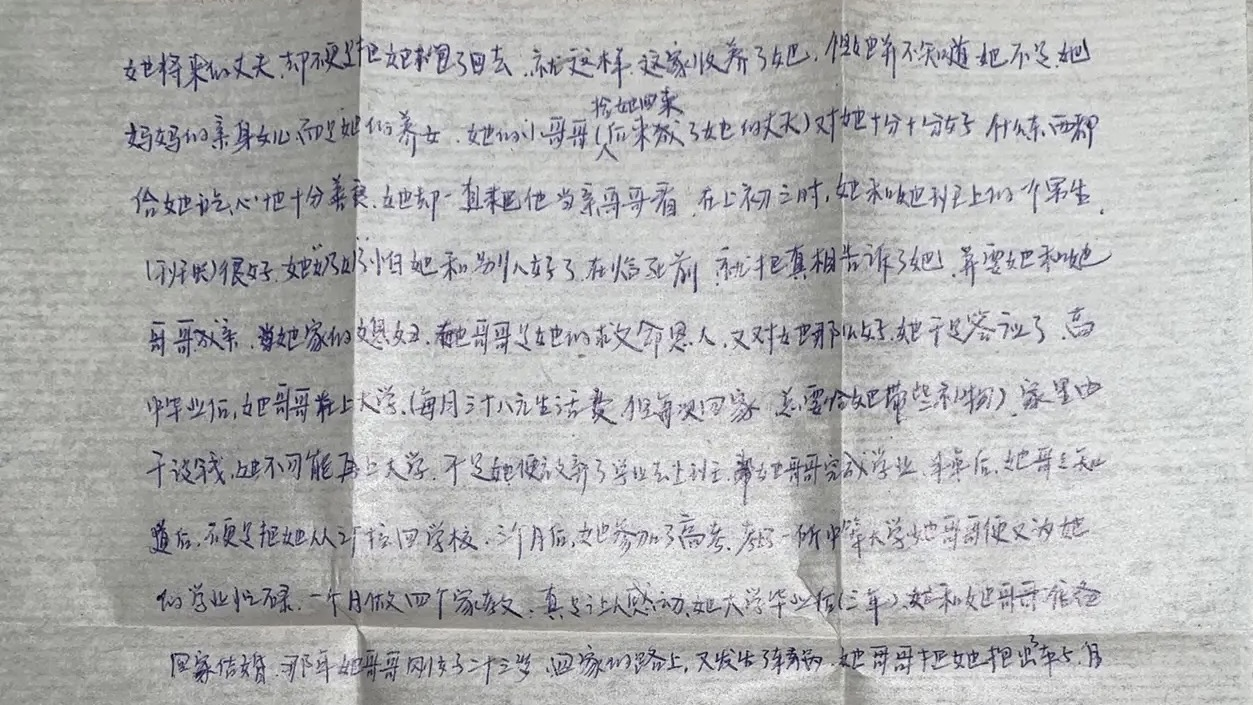 她将来的丈夫,却硬是把她抱了回去,就这样,这家收养了她,但她并不知道她不是她
妈妈的亲身女儿,而是她们养女.她的小哥哥(后来成了她的丈夫)对她十分十分好 什么东西都
捡她回来
人
给她吃,心地十分善良,她却一直把他当亲哥哥看,在上初三时,她和她班上的一个男生.
(班长)很好.她奶奶怕她和别人好了,在临死前,就把真相告诉了她,并要她和她
哥哥成亲,当她家的媳妇.她哥哥是她的救命恩人,又对她那么好,她于是答应了,高
中毕业后,她哥哥在上大学,(每月三十八元生活费,但每次回家,总要给她带些礼物),家里由
于没钱,她不可能再上大学,于是她便放弃了学业去上班,帮她哥哥完成学业,半年后,她哥哥知
道后,硬是把她从工厂拉回学校,三个月后,她参加了高考,考了一所中等大学她哥哥便又为她
的学业忙碌,一个月做四个家教,真是让人感动,她大学毕业后(三年),她和她哥哥准备
回家结婚,那年她哥哥刚好二十三岁,回家的路上,又发生了车祸,她哥哥把她推出了车去,自